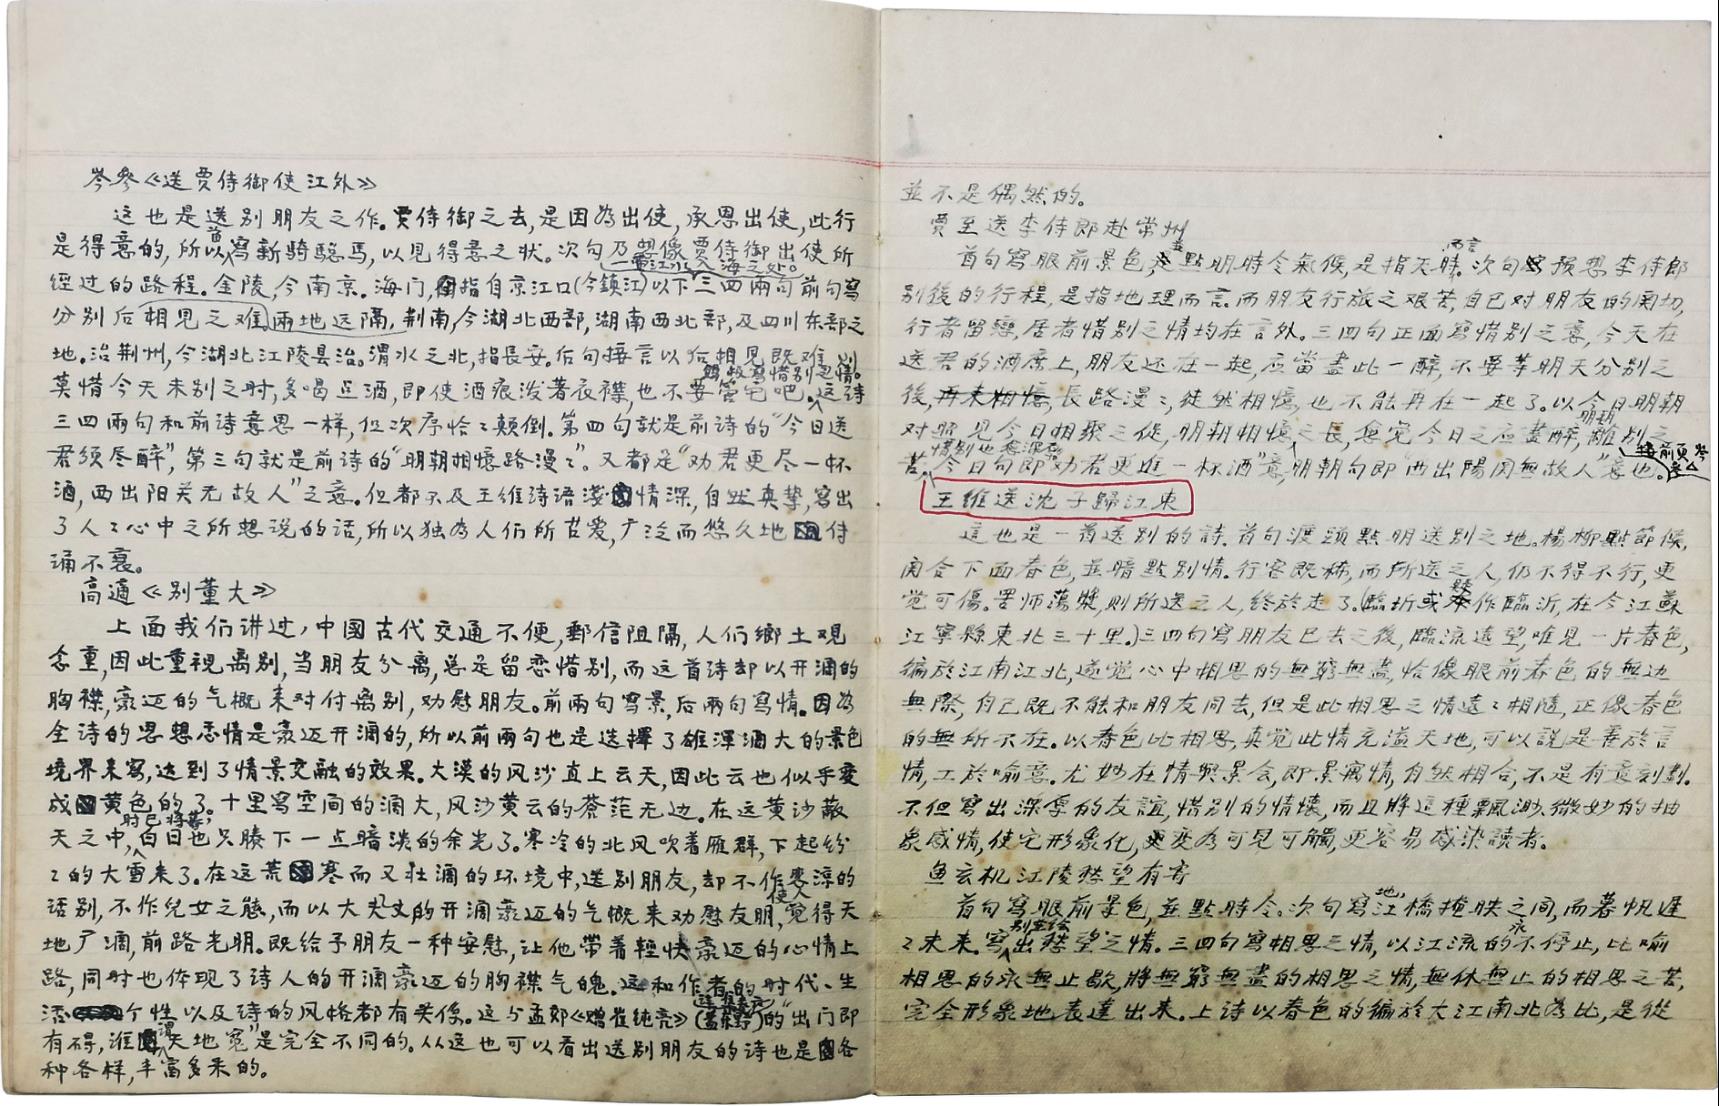 岑參《送贾侍御使江外》
这也是送别朋友之作。贾侍御之去,是因為出使,承恩出使,此行
是得意的,所以首寫新骑驄馬,以見得意之状。次句乃想像贾侍御出使所
經过的路程。金陵,今南京。海门,指自京江口(今鎮江)以下一帶江水入海之处。三四兩句前句寫
分别后相見之难,兩地远隔,荆南,今湖北西部,湖南西北部,及四川东部之
地。治荆州,今湖北江陵县治。渭水之北,指長安。后句接言以后相見既难,
莫惜今天未别之时,多喝点酒,即使酒痕泼著衣襟,也不要管它吧。这诗
三四兩句和前诗意思一样,但次序恰〻颠倒。第四句就是前诗的“今日送
君须尽醉”,第三句就是前诗的“明朝相憶路漫〻”。又都是“劝君更尽一杯
酒,西出阳关无故人”之意。但都不及王維诗语淺情深,自然真挚,寫出
了人〻心中之所想说的话,所以独為人们所喜爱,广泛而悠久地传
诵不衰。
高適《别董大》
上面我们讲过,中國古代交通不便,郵信阻隔,人们鄉土观
念重,因此重視离别,当朋友分离,总是留恋惜别,而这首诗却以开濶的
胸襟,豪迈的气概来对付离别,劝慰朋友。前兩句寫景,后兩句寫情。因為
全诗的思想感情是豪迈开濶的,所以前兩句也是选擇了雄渾濶大的景色
境界来寫,达到了情景交融的效果。大漠的风沙直上云天,因此云也似乎变
成黄色的了。十里寫空间的濶大,风沙黄云的苍茫无边。在这黄沙蔽
天之中,时已將暮,白日也只賸下一点暗淡的余光了。寒冷的北风吹着雁群,下起纷
〻的大雪来了。在这荒寒而又壮濶的环境中,送别朋友,却不作凄凉的
话别,不作兒女之態,而以大丈夫的开濶豪迈的气概来劝慰友朋,使人覚得天
地广濶,前路光明。既给予朋友一种安慰,让他带着輕快豪迈的心情上
路,同时也体现了诗人的开濶豪迈的胸襟气魄。这和作者的时代、生
活个性以及诗的风格都有关係。这与孟郊《赠崔纯亮》的“出门即
有碍,谁谓天地寬”是完全不同的。从这也可以看出送别朋友的诗也是各
种各样,丰富多采的。
並不是偶然的。
賈至送李侍郎赴常州
首句寫眼前景色,並點明時令氣候,是指天時而言。次句預想李侍郎
別後的行程,是指地理而言。而朋友行旅之艰苦,自已对朋友的関切,
行者留戀,居者惜別之情均在言外。三四句正面寫惜別之意,今天在
送君的酒席上,朋友还在一起,应當盡此一醉,不要等明天分别之
後,長路漫〻,徒然相憶,也不能再在一起了。以今日明朝
对照,見今日相聚之促,明朝相憶之長,愈覚今日之应盡醉,離别之
苦,惜别也愈深,今日句即“劝君更進一杯酒”意,明朝句即“西出陽関無故人”意也。
接前頁岑參
王維送沈子歸江東
這也是一首送别的詩。首句渡頭點明送别之地。楊柳點節候,
関合下面春色,並暗點别情。行客既稀,而所送之人,仍不得不行,更
覚可傷。罟师蕩槳,則所送之人,終於走了。(臨圻或疑作臨沂,在今江蘇
江寧縣東北三十里。)三四句寫朋友已去之後,臨流遠望唯見一片春色,
徧於江南江北,遂覚心中相思的無窮無盡,恰像眼前春色的無边
無際,自己既不能和朋友同去,但是此相思之情遠〻相隨,正像春色
的無所不在。以春色比相思,真覚此情充溢天地,可以説是善於言
情,工於喻意。尤妙在情與景会,即景寓情,自然相合,不是有意刻劃。
不但寫出深厚的友誼,惜别的情懷,而且將這種飄渺、微妙的抽
象感情,使它形象化,更变為可見可觸,更容易感染読者。
魚玄机江陵愁望有寄
首句寫眼前景色,並點時令。次句寫江橋掩映之间,而暮帆遲
〻未来。寫出愁望之情。三四句寫相思之情,以江流的永不停止,比喻
相思的永無止歇,將無窮無盡的相思之情,無休無止的相思之苦,
完全形象地表達出来。上诗以春色的徧於大江南北為比,是從